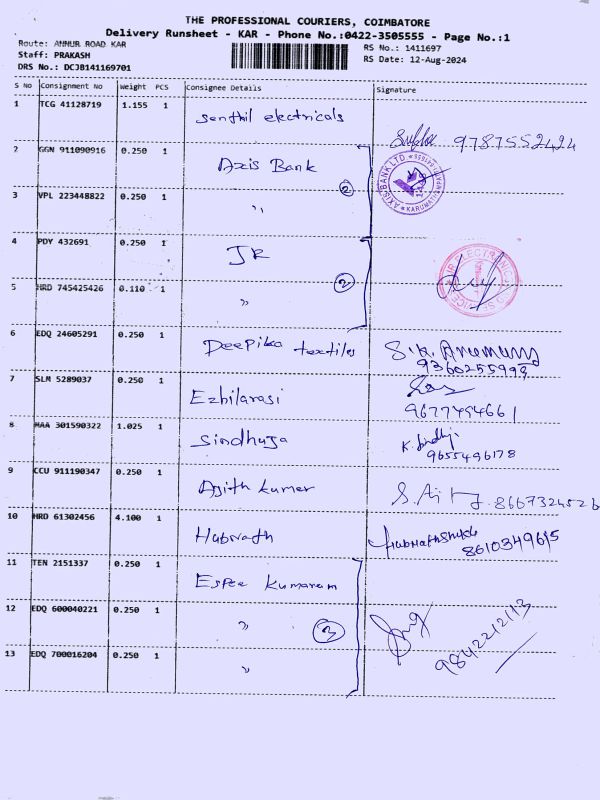 THE PROFESSIONAL COURIERS, COIMBATORE
Delivery Runsheet - KAR - Phone No.:0422-3505555 - Page No.:1
Route: ANNUR ROAD KAR
RS No.: 1411697
Staff: PRAKASH
RS Date: 12-Aug-2024
DRS No.: DCJ8141169701
S No Consignment No Weight PCS Consignee Details Signature
1 TCG 41128719 1.155 1 Senthil electricals 9787552424
2 GGN 911090916 0.250 1 Axis Bank
AXIS BANK LTD.
3 VPL 223448822 0.250 1 "
2
4 PDY 432691 0.250 1 JR
5 HRD 745425426 0.110 1 "
2
6 EDQ 24605291 0.250 1 Deepika textiles
9360255998
7 SLM 5289037 0.250 1 Ezhilarasi
9677494661
8 MAA 301590322 1.025 1 Sindhuja K. Sindhuja
9655496178
9 CCU 911190347 0.250 1 Ajith kumar 8667324526
10 HRD 61302456 4.100 1 Hubsrath
8610349615
11 TEN 2151337 0.250 1 Espee Kumaram
12 EDQ 600040221 0.250 1 " 3
9842212113
13 EDQ 700016204 0.250 1 "